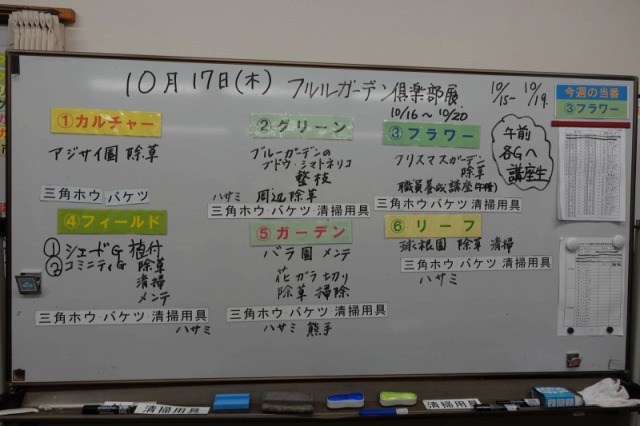 10月17日(木) フルルガーデン倶楽部展
10/16～10/20
10/15- 10/19
今週の当番
③フラワー
午前
各Gへ
講座生
①カルチャー
アジサイ園 除草
三角ホウ バケツ
②グリーン
ブルーガーデンの
ブドウ・シマトネリコ
整枝
ハサミ 周辺除草
三角ホウ バケツ 清掃用具
③フラワー
クリスマスガーデン
除草
職員養成講座(午後)
三角ホウ バケツ 清掃用具
④フィールド
①シェードG 植付
②コミニティG 除草
清掃
メンテ
三角ホウ バケツ 清掃用具
ハサミ
⑤ガーデン
バラ園 メンテ
花ガラ切り
除草 掃除
三角ホウ バケツ 清掃用具
ハサミ 熊手
⑥リーフ
球根園 除草 清掃
三角ホウ バケツ 清掃用具
ハサミ
清掃用具
清掃用具